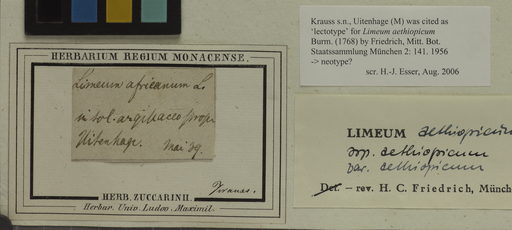 Krauss s.n., Uitenhage (M) was cited as
‘lectotype’ for Limeum aethiopicum
Burm. (1768) by Friedrich, Mitt. Bot.
Staatssammlung München 2: 141. 1956
-> neotype?
scr. H.-J. Esser, Aug. 2006
HERBARIUM REGIUM MONACENSE.
Limeum africanum L.
in sol. argillaceo prope
Uitenhage. Mai 39.
Krauss.
HERB. ZUCCARINII.
Herbar. Univ. Ludov. Maximil.
LIMEUM aethiopicum
ssp. aethiopicum
var. aethiopicum
Det. – rev. H. C. Friedrich, Münch